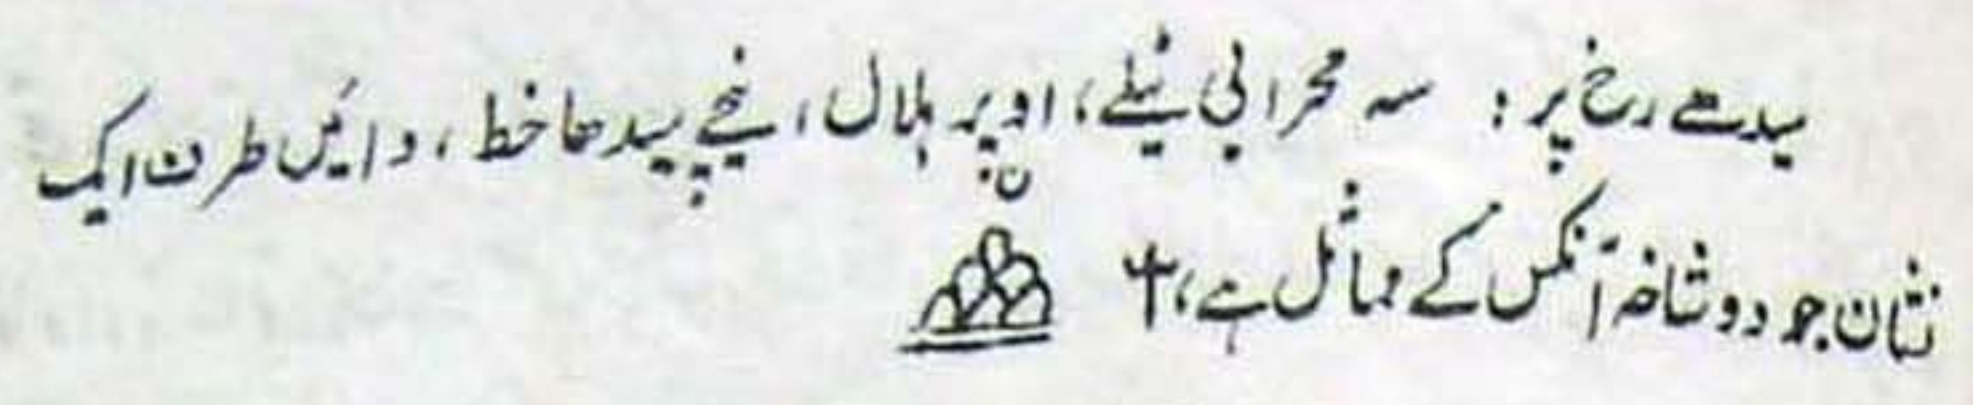 سیدھے رخ پر: سہ محرابی ٹیلے، اوپر ہلال، نیچے سیدھا خط، دائیں طرف ایک
نشان جو دوشاخہ آنکس کے مماثل ہے،